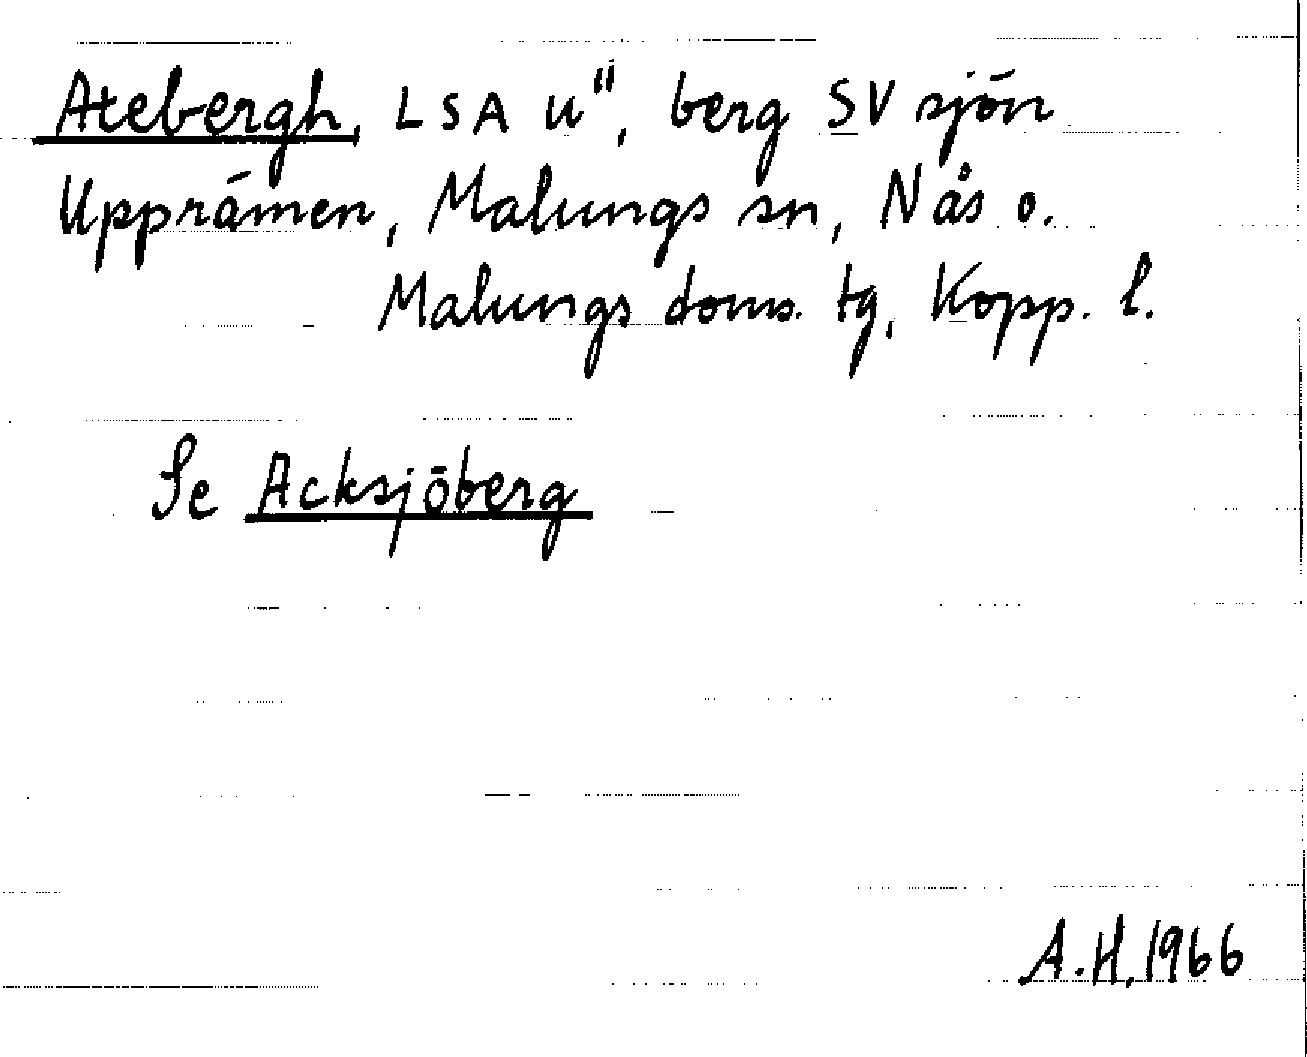 Atebergh, LSA u", berg SV sjön
Upprämen, Malungs sn, Nås o.
Malungs doms. tg, Kopp. l.
Se Acksjöberg
A.H. 1966